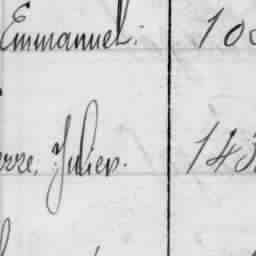 Emmanuel. 100
erre, Julien. 143